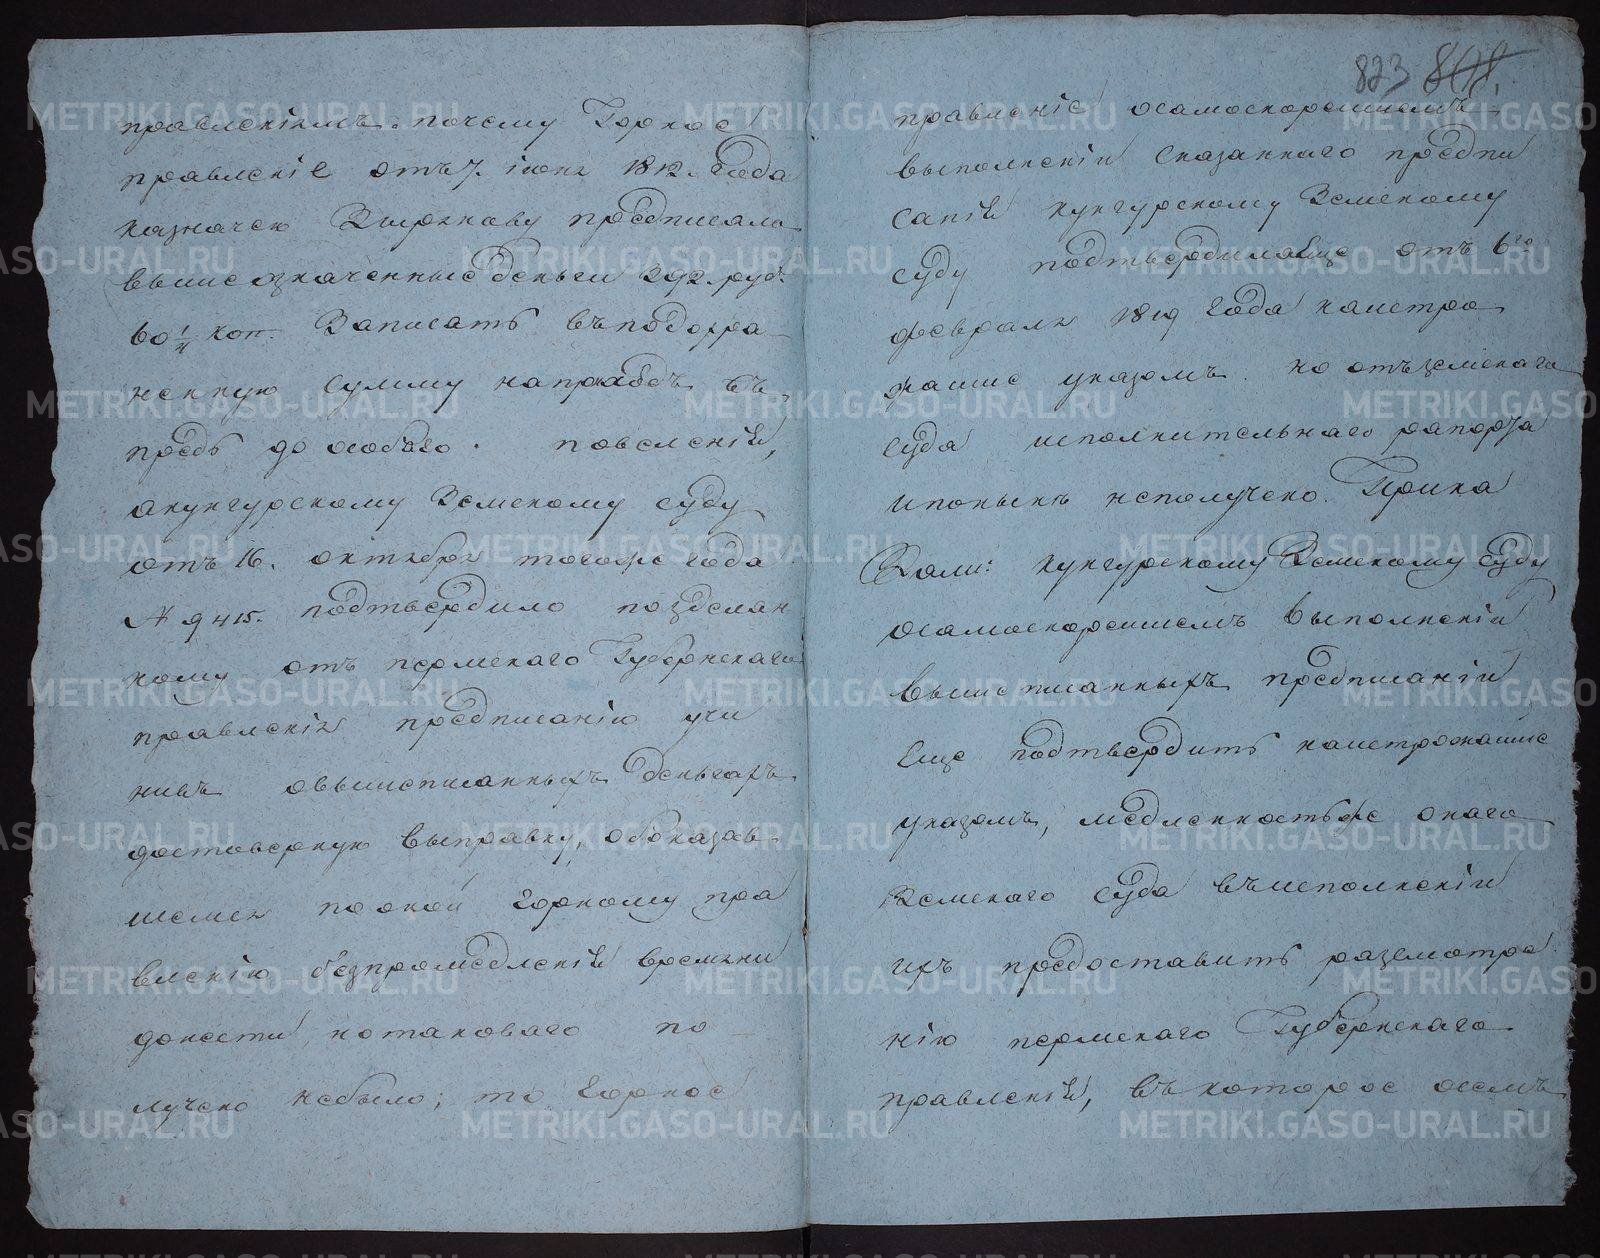 правленіемъ. почему Горное
правленіе отъ 7. іюня 1812. года
казначею предписало
вышеозначенные деньги 292. руб.
60 1/4 коп. Записать въ подохра
ненную сумму на приходъ въ
предь до особаго. повеленія,
а кунгурскому Земскому суду
отъ 16. октября того же года
№ 9415. подтвердило по зделан
ному отъ пермскаго Губернскаго
правленія предписанію учи
нивъ о вышеписанныхъ деньгахъ
достоверную выправку, о оказав
шемся по оной Горному пра
вленію безпромедленія времяни
донести, но таковаго по
лучено небыло; то Горное
823 808.
правленіе о самоскорейшемъ
выполненіи сказаннаго предпи
санія кунгурскому Земскому
суду подтвердило еще отъ 6го
февраля 1819 года наистро
жайше указомъ. но отъ земскаго
суда исполнительнаго рапорта
и поныне неполучено. Прика
зали: кунгурскому Земскому суду
о самоскорейшемъ выполненіи
вышеписанныхъ предписаніи
еще подтвердить наистрожайше
указомъ, медленность же онаго
Земскаго суда въ исполненіи
ихъ предоставить разсмотре
нію пермскаго Губернскаго
правленія, въ которое о семъ